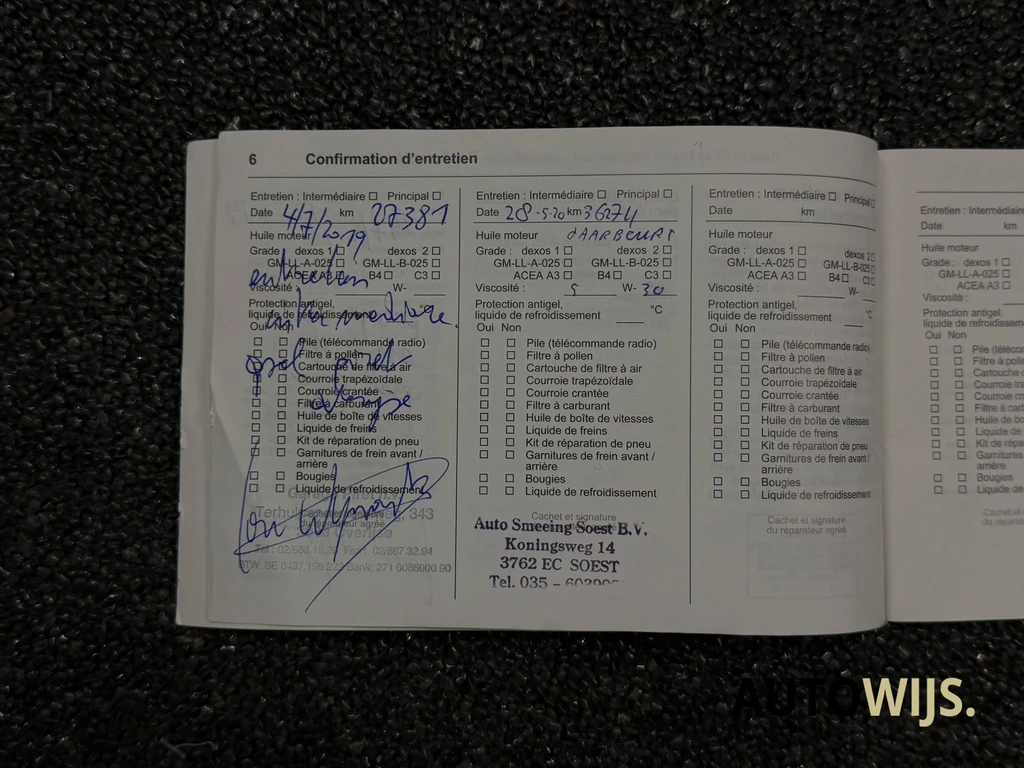 6 Confirmation d'entretien
Entretien : Intermédiaire ☐ Principal ☐
Date 4/7/2019 km 27381
Huile moteur
Grade : dexos 1 ☐ dexos 2 ☐
GM-LL-A-025 ☐ GM-LL-B-025 ☐
ACEA A3 ☐ B4 ☐ C3 ☐
Viscosité : W-
entretien
Protection antigel,
liquide de refroidissement
Oui Non
☐ ☐ Pile (télécommande radio)
☐ ☐ Filtre à pollen
☐ ☐ Cartouche de filtre à air
☐ ☐ Courroie trapézoïdale
☐ ☐ Courroie crantée
☐ ☐ Filtre à carburant
☐ ☐ Huile de boîte de vitesses
☐ ☐ Liquide de freins
☐ ☐ Kit de réparation de pneu
☐ ☐ Garnitures de frein avant /
arrière
☐ ☐ Bougies
☐ ☐ Liquide de refroidissement
343
du réparateur agréé
Tel : 02/688.18.20 Fax : 02/687.32.94
Bank: 271 0088000 90
Entretien : Intermédiaire ☐ Principal ☐
Date 28-5-20 km 36274
Huile moteur JAARBEURT
Grade : dexos 1 ☐ dexos 2 ☐
GM-LL-A-025 ☐ GM-LL-B-025 ☐
ACEA A3 ☐ B4 ☐ C3 ☐
Viscosité : 5 W- 30
Protection antigel,
liquide de refroidissement °C
Oui Non
☐ ☐ Pile (télécommande radio)
☐ ☐ Filtre à pollen
☐ ☐ Cartouche de filtre à air
☐ ☐ Courroie trapézoïdale
☐ ☐ Courroie crantée
☐ ☐ Filtre à carburant
☐ ☐ Huile de boîte de vitesses
☐ ☐ Liquide de freins
☐ ☐ Kit de réparation de pneu
☐ ☐ Garnitures de frein avant /
arrière
☐ ☐ Bougies
☐ ☐ Liquide de refroidissement
Cachet et signature
Auto Smeeing Soest B.V.
Koningsweg 14
3762 EC SOEST
Tel. 035 –
Entretien : Intermédiaire ☐ Principal ☐
Date km
Huile moteur
Grade : dexos 1 ☐ dexos 2 ☐
GM-LL-A-025 ☐ GM-LL-B-025 ☐
ACEA A3 ☐ B4 ☐ C3 ☐
Viscosité : W-
Protection antigel,
liquide de refroidissement °C
Oui Non
☐ ☐ Pile (télécommande radio)
☐ ☐ Filtre à pollen
☐ ☐ Cartouche de filtre à air
☐ ☐ Courroie trapézoïdale
☐ ☐ Courroie crantée
☐ ☐ Filtre à carburant
☐ ☐ Huile de boîte de vitesses
☐ ☐ Liquide de freins
☐ ☐ Kit de réparation de pneu
☐ ☐ Garnitures de frein avant /
arrière
☐ ☐ Bougies
☐ ☐ Liquide de refroidissement
Cachet et signature
du réparateur agréé
Entretien : Intermédiaire
Date km
Huile moteur
Grade : dexos 1 ☐
GM-LL-A-025 ☐
ACEA A3 ☐
Viscosité :
Protection antigel,
liquide de refroidissement
Oui Non
☐ ☐ Pile (téléco
☐ ☐ Filtre à poll
☐ ☐ Cartouche d
☐ ☐ Courroie tra
☐ ☐ Courroie cr
☐ ☐ Filtre à carb
☐ ☐ Huile de boî
☐ ☐ Liquide de f
☐ ☐ Kit de répa
☐ ☐ Garnitures
arrière
☐ ☐ Bougies
☐ ☐ Liquide de
Cachet et
du répara
AUTOWIJS.